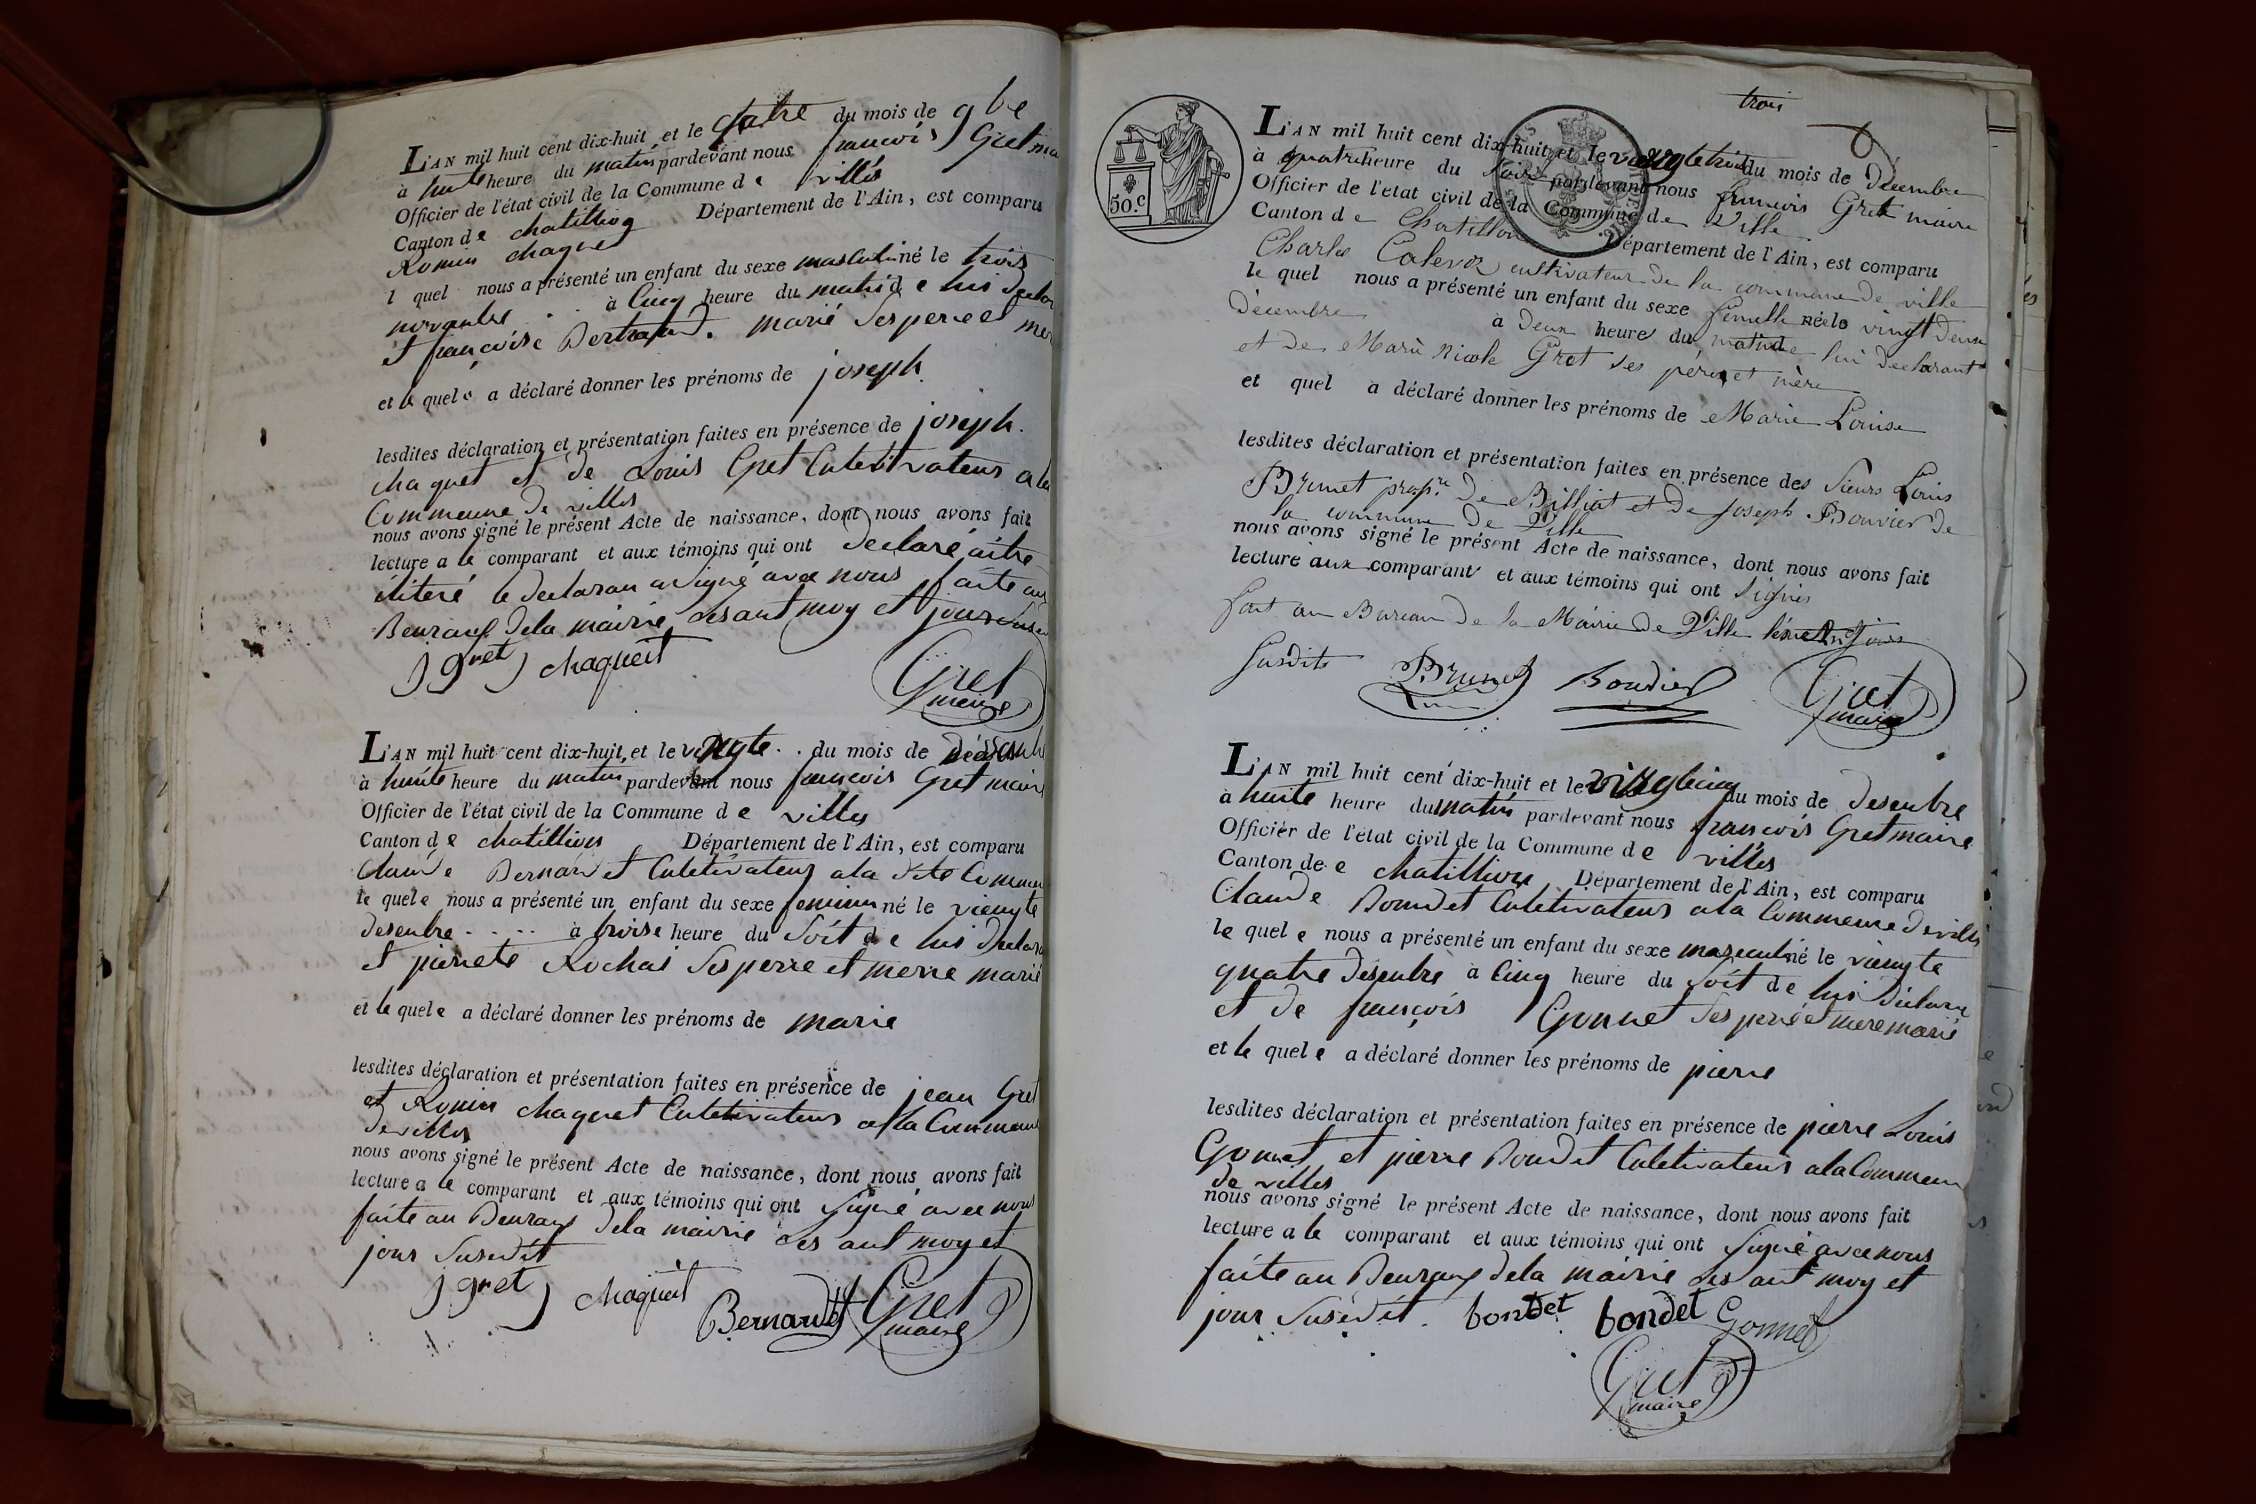 L'AN mil huit cent dix-huit et le quatre du mois de 9bre
à huite heure du matin pardevant nous francois Gret
Officier de l'état civil de la Commune de villes
Canton de chatillion Département de l'Ain, est comparu
Romin chaquet
l quel nous a présenté un enfant du sexe masculin né le trois
novenbre à Cinq heure du matin de lui
et françoise Bertrand marié ses perre et
et le quele a déclaré donner les prénoms de joseph
lesdites déclaration et présentation faites en présence de joseph
chaquet et de Louis Gret Culetivateurs a la
Commeune de villes
nous avons signé le présent Acte de naissance, dont nous avons fait
lecture a le comparant et aux témoins qui ont declaré aitre
iliteré le declaran a signé avec nous faite au
Beuraux de la mairie Les ant moy et jour
J gret chaqueit Gret
maire
L'AN mil huit cent dix-huit, et le vingte du mois de
à huite heure du matin pardevant nous francois Gret maire
Officier de l'état civil de la Commune de villes
Canton de chatillion Département de l'Ain, est comparu
Claude Bernardet Culetivateur a la dite
le quele nous a présenté un enfant du sexe feminin né le viengte
desenbre à troise heure du soit de lui
et pierrete Rochai ses perre et merre marié
et le quele a déclaré donner les prénoms de marie
lesdites déclaration et présentation faites en présence de jean Gret
et Romin chaquet Culetivateurs a la
de villes
nous avons signé le présent Acte de naissance, dont nous avons fait
lecture a le comparant et aux témoins qui ont signé avec nous
faite au Beuraux de la mairie Les ant moy et
jour susedit
J gret chaqueit Bernardet Gret
maire
trois
50.c
L'AN mil huit cent dix-huit et le vingt trois du mois de décembre
à quatre heure du soir pardevant nous francois Gret maire
Officier de l'etat civil de la Commune de Ville
Canton de Chatillon Département de l'Ain, est comparu
Charles cultivateur de la commune de ville
le quel nous a présenté un enfant du sexe femelle née le vingt deux
décembre à deux heure du matin de lui declarant
et de Marie Nicole Gret ses père et mère
et quel a déclaré donner les prénoms de Marie Louise
lesdites déclaration et présentation faites en présence des Sieurs Louis
Brunet propre de Billiat et de Joseph Bouvier de
la commune de Ville
nous avons signé le présent Acte de naissance, dont nous avons fait
lecture aux comparant et aux témoins qui ont signés
fait au Bureau de la Mairie de Ville jour
susdits Brunet Gret
maire
L'AN mil huit cent dix-huit et le vingtcinq du mois de desenbre
à huite heure du matin pardevant nous francois Gret maire
Officier de l'état civil de la Commune de villes
Canton de chatillion Département de l'Ain, est comparu
Claude Bondet Culetivateur a la Commeune de villes
le quele nous a présenté un enfant du sexe masculin né le viengte
quatre desenbre à Cinq heure du soit de lui
et de françois Gonnet ses perre et mere marié
et le quele a déclaré donner les prénoms de pierre
lesdites déclaration et présentation faites en présence de pierre Louis
Gonnet et pierre Bondet Culetivateurs a la Commeune
de villes
nous avons signé le présent Acte de naissance, dont nous avons fait
lecture a le comparant et aux témoins qui ont signé avec nous
faite au Beuraux de la mairie Les ant moy et
jour susedit. bondet bondet Gonnet
Gret
maire